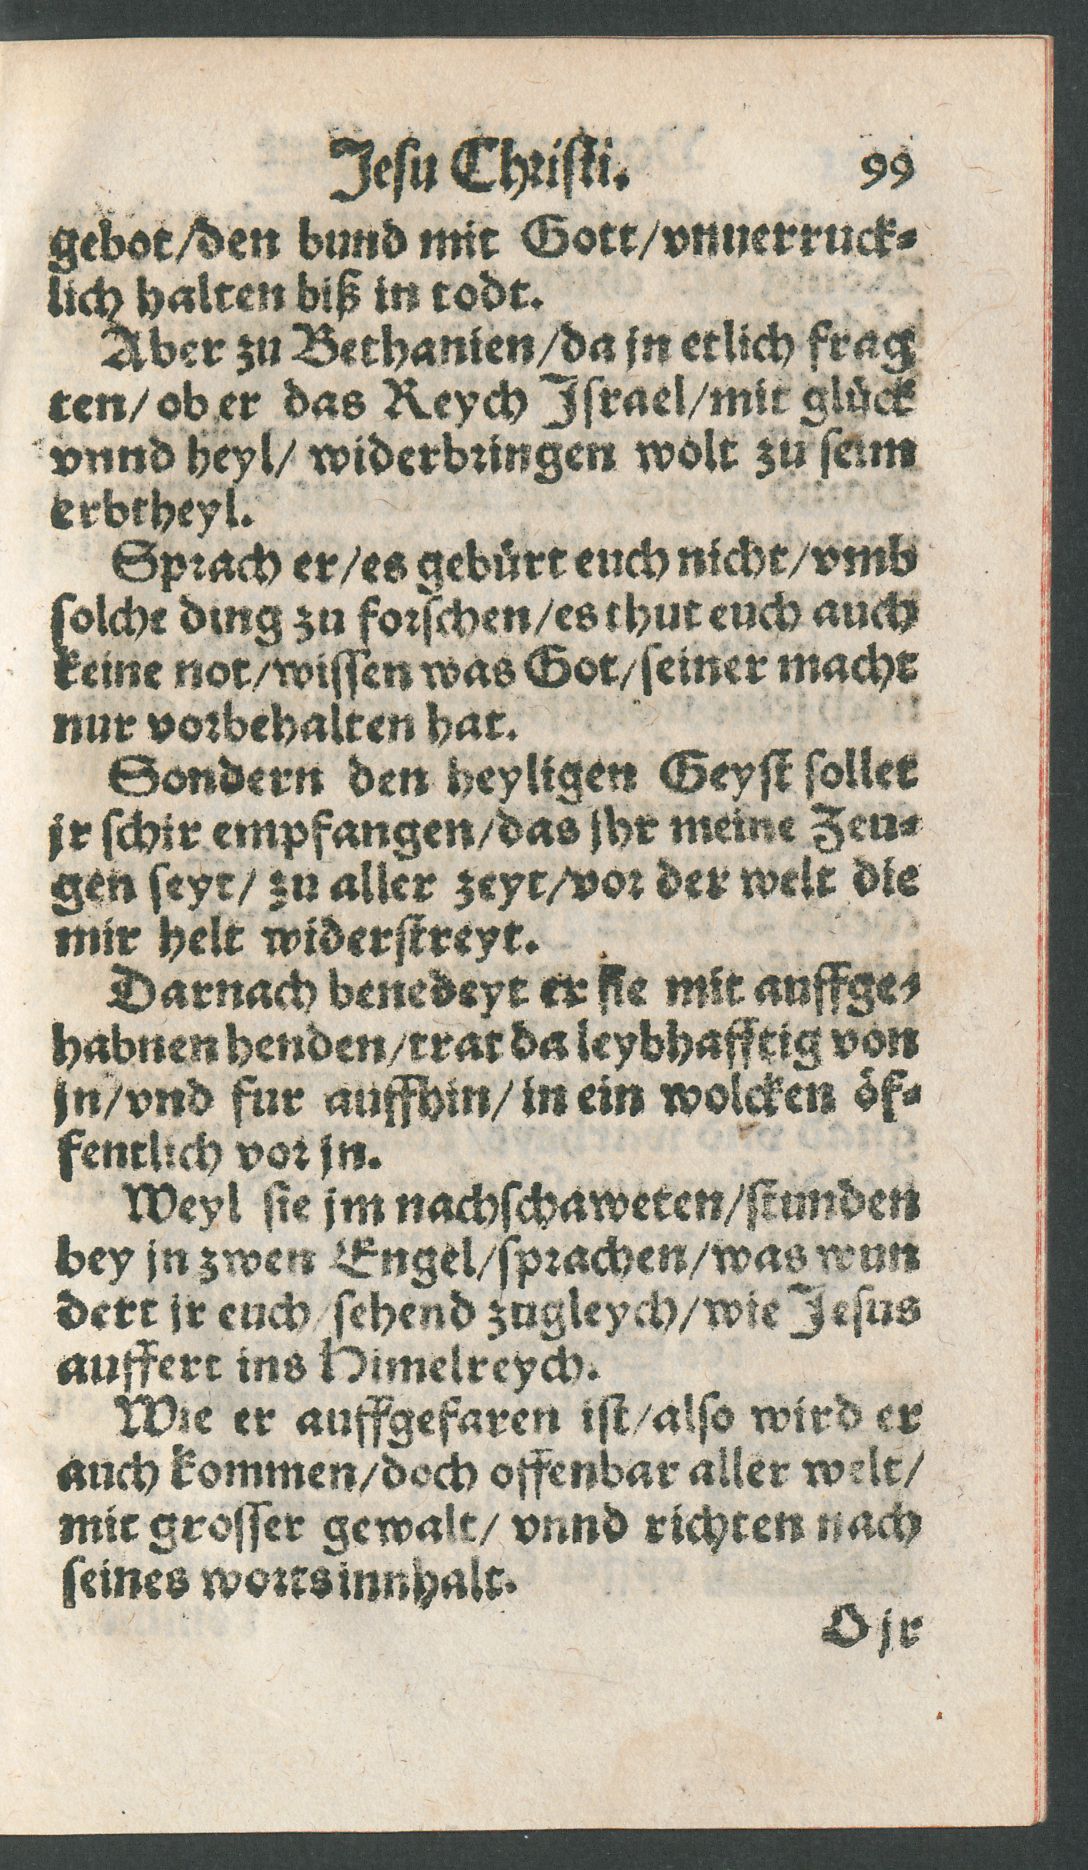 Jesu Christi. 99
gebot/den bund mit Gott/vnuerruck-
lich halten biß in todt.
Aber zu Bethanien/da jn etlich frag
ten/ ob er das Reych Israel/mit glück
vnnd heyl/ widerbringen wolt zu seim
erbtheyl.
Sprach er/es gebürt euch nicht/vmb
solche ding zu forschen/es thut euch auch
keine not/wissen was Got/seiner macht
nur vorbehalten hat.
Sondern den heyligen Geyst sollet
jr schir empfangen/das jhr meine Zeu-
gen seyt/ zu aller zeyt/vor der welt die
mir helt widerstreyt.
Darnach benedeyt er sie mit auffge-
habnen henden/trat da leybhafftig von
jn/vnd fur auffhin/ in ein wolcken öf-
fentlich vor jn.
Weyl sie jm nachschaweten/stunden
bey jn zwen Engel/sprachen/was wun
dert jr euch/sehend zugleych/wie Jesus
auffert ins Himelreych.
Wie er auffgefaren ist/also wird er
auch kommen/doch offenbar aller welt/
mit grosser gewalt/ vnnd richten nach
seines worts innhalt.
O jr